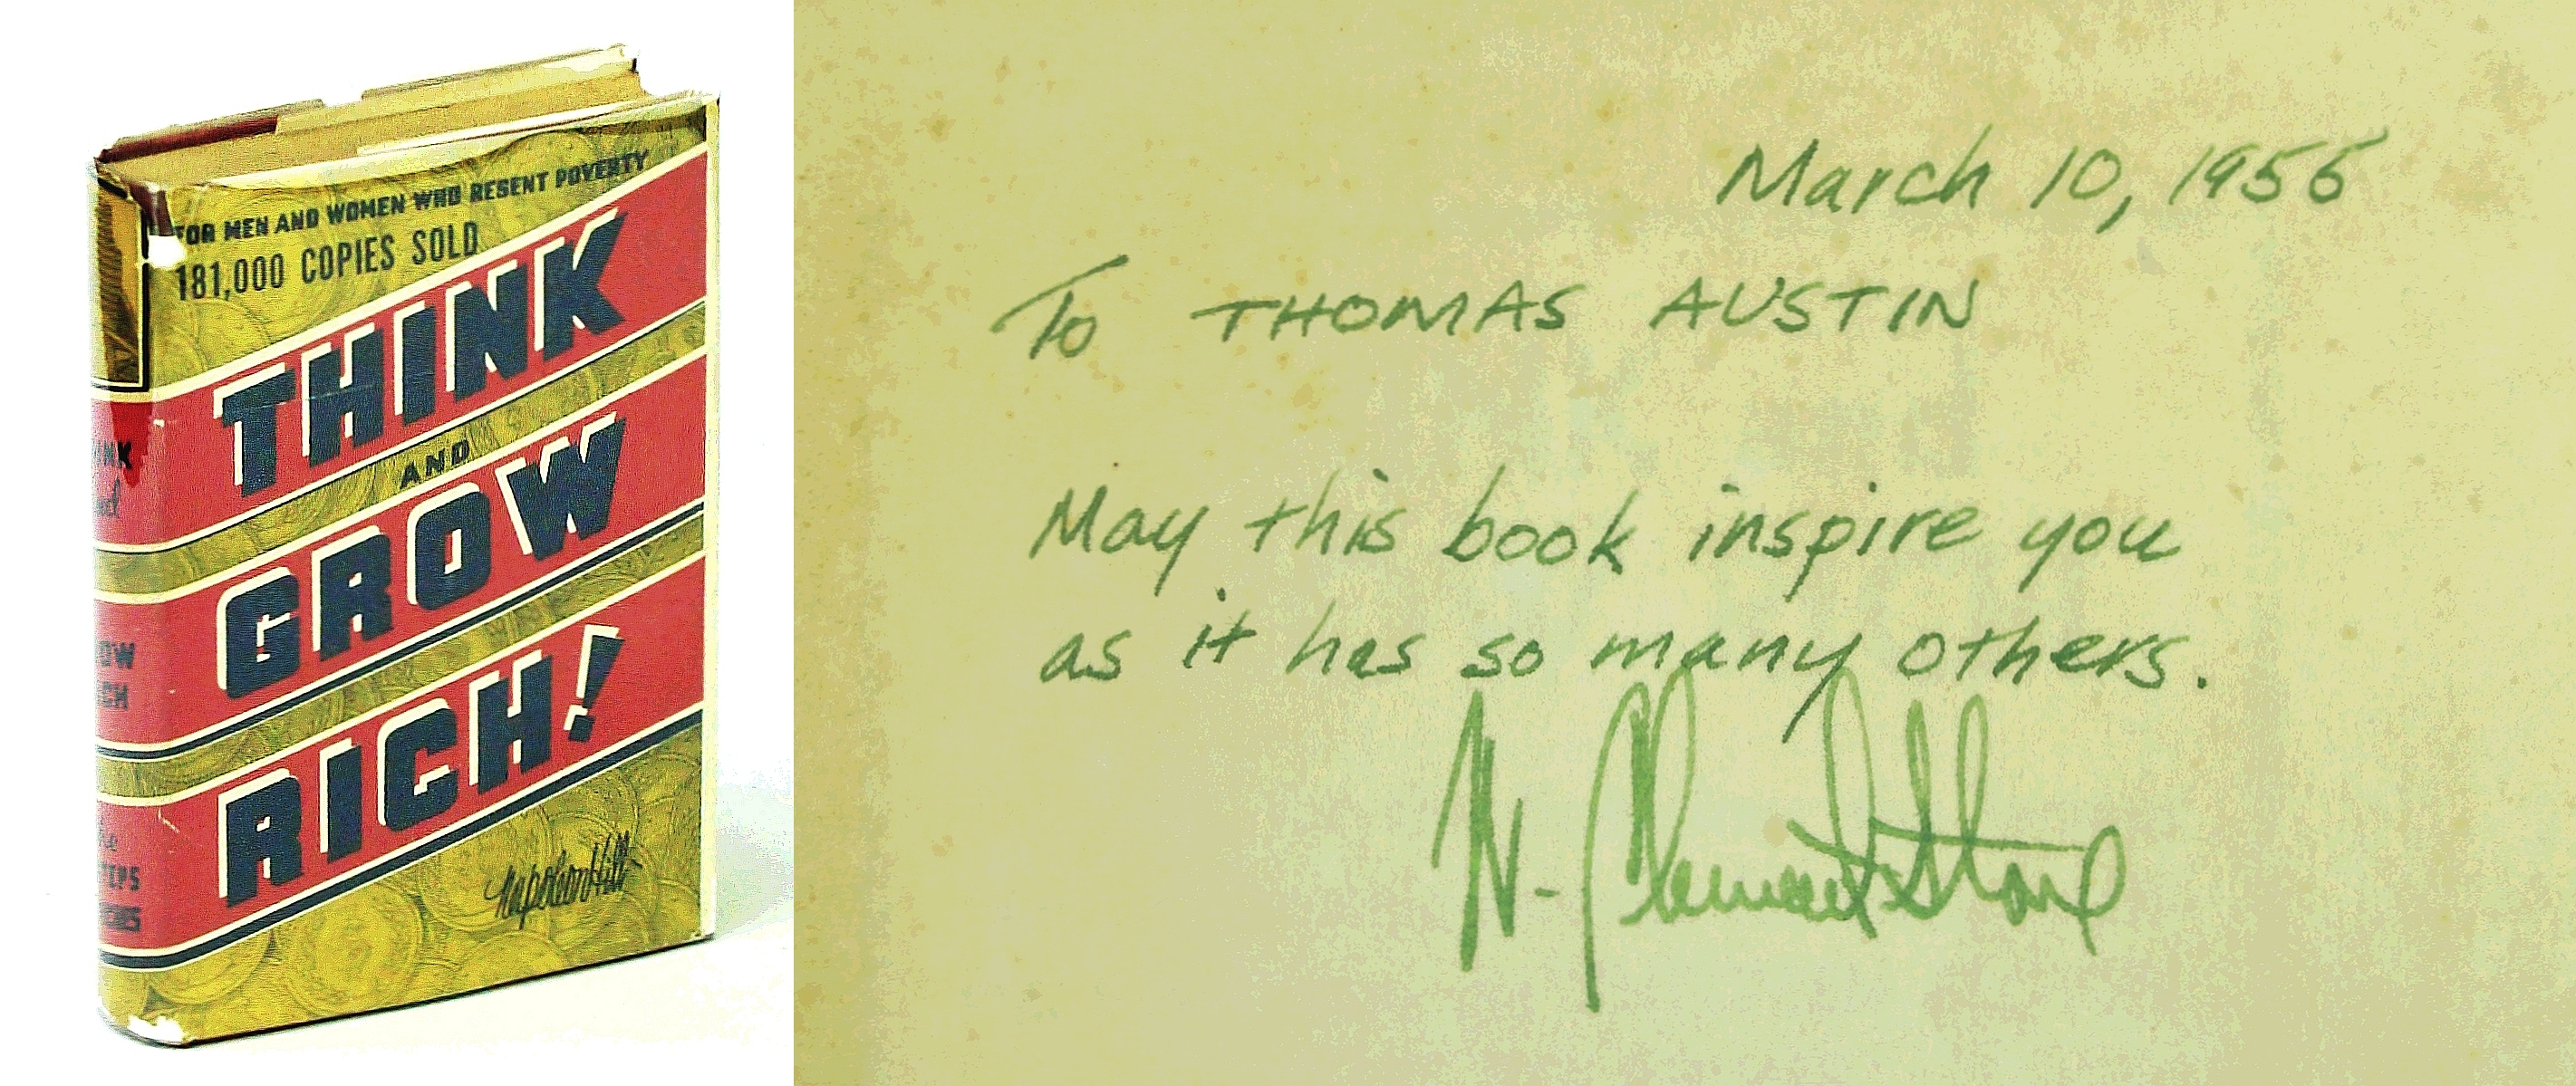 FOR MEN AND WOMEN WHO RESENT POVERTY
181,000 COPIES SOLD
THINK
AND
GROW
RICH!
Napoleon Hill
March 10, 1955
To THOMAS AUSTIN
May this book inspire you
as it has so many others.
W. Clement Stone